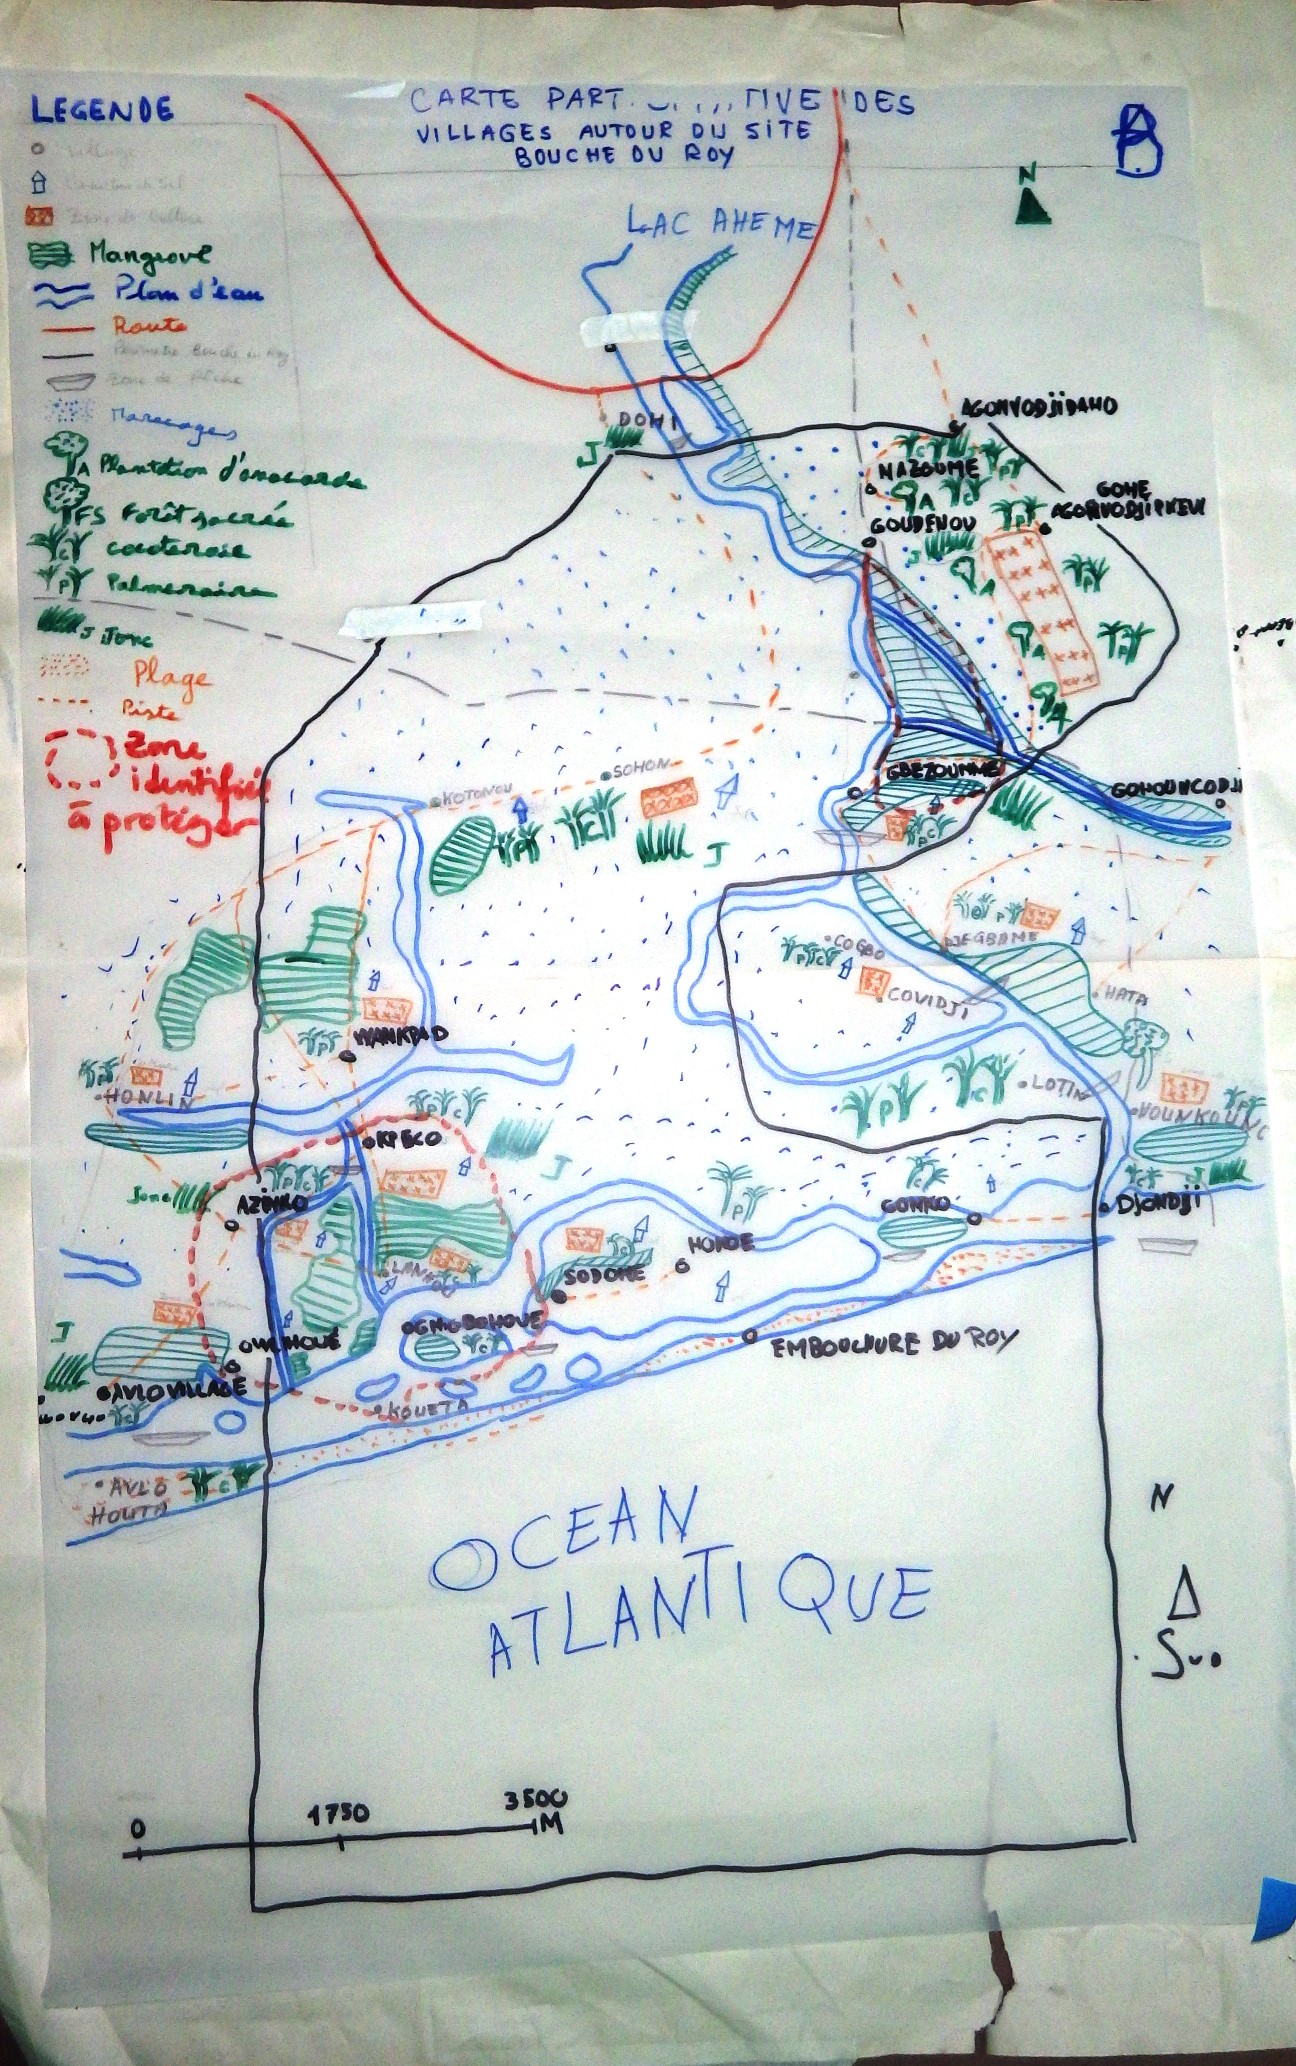 CARTE PART. TIVE DES
VILLAGES AUTOUR DU SITE
BOUCHE DU ROY
B
LEGENDE
Village
Zone de culture
Mangrove
Plan d'eau
Route
Perimetre Bouche du Roy
Zone de Pêche
Marecages
A Plantation d'anacarde
FS Forêt sacrée
C cocoteraie
P Palmeraie
J Jonc
Plage
Piste
Zone
identifié
à protéger
N
LAC AHEME
DOHI
J
AGONVODJIDAHO
C
P
NAZOUME
A
C
GOHE
AGONVODJIPKEVI
P
GOUDENOU
J
A
P
A
P
A
GBEZOUNME
GOHOUNCODJI
C
SOHON
KOTONOU
P
C
J
P
DJEGBAME
COGBO
P
C
COVIDJI
HATA
WANKPAD
P
HONLIN
LOTIN
P
C
VOUNKOUNC
P
C
KPECO
J
P
C
Jonc
AZINKO
P
GONKO
C
J
DJONDJI
HOKOE
SODOME
C
J
OGNIGBOHOUE
C
EMBOUCHURE DU ROY
AVLO VILLAGE
C
KOUETA
AVLO
HOUTA
C
OCEAN
ATLANTIQUE
N
SUD
0
1750
3500
M